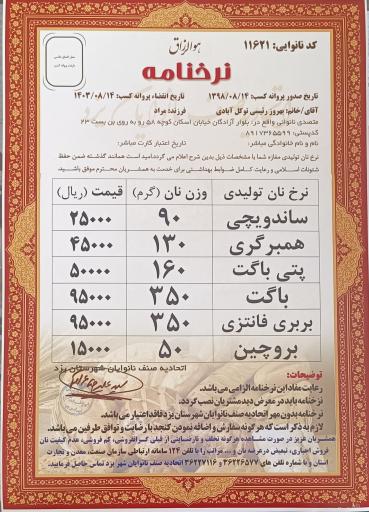 هوالرزاق
کد نانوایی: ۱۱۶۲۱
نرخنامه
تاریخ صدور پروانه کسب: ۱۳۹۸/۰۸/۱۴ تاریخ انقضاء پروانه کسب: ۱۴۰۳/۰۸/۱۴
آقای/خانم: بهروز رئیسی توکل آبادی فرزند: مراد
متصدی نانوائی واقع در: بلوار آزادگان خیابان اسکان کوچه ۵۸ رو به روی بن بست ۲۳
کدپستی: ۸۹۱۷۳۶۵۵۹۹
نام و نام خانوادگی مباشر: تاریخ اعتبار کارت مباشر:
نرخ نان تولیدی مغازه شما با مشخصات ذیل بدین شرح اعلام می گردد امید است همانند گذشته ضمن حفظ
شئونات اسلامی و رعایت کامل ضوابط بهداشتی برای خدمت به همشهریان محترم موفق باشید.
نرخ نان تولیدی وزن نان (گرم) قیمت (ریال)
ساندویچی ۹۰ ۲۵۰۰۰
همبرگری ۱۳۰ ۴۵۰۰۰
پتی باگت ۱۶۰ ۵۰۰۰۰
باگت ۳۵۰ ۹۵۰۰۰
بربری فانتزی ۳۵۰ ۹۵۰۰۰
بروچین ۵۰ ۱۵۰۰۰
اتحادیه صنف نانوایان شهرستان یزد
توضیحات:
رعایت مفاد این نرخنامه الزامی می باشد.
نرخنامه باید در معرض دید مشتریان نصب گردد.
نرخنامه بدون مهر اتحادیه صنف نانوایان شهرستان یزد فاقد اعتبار می باشد.
لازم به ذکر است که هرگونه سفارش و اضافه نمودن کنجد با رضایت و توافق طرفین می باشد.
همشهریان عزیز در صورت مشاهده هرگونه تخلف و نارضایتی از قبیل گرانفروشی، کم فروشی، عدم کیفیت نان
فروش اجباری، تبعیض در عرضه نان و ... مراتب را با تلفن ۱۲۴ سامانه ارتباطی سازمان صنعت، معدن و تجارت
استان و یا شماره تلفن های ۳۶۲۲۶۵۷۷ و ۳۶۲۲۷۱۱۶ اتحادیه صنف نانوایان شهر یزد تماس حاصل فرمایید.